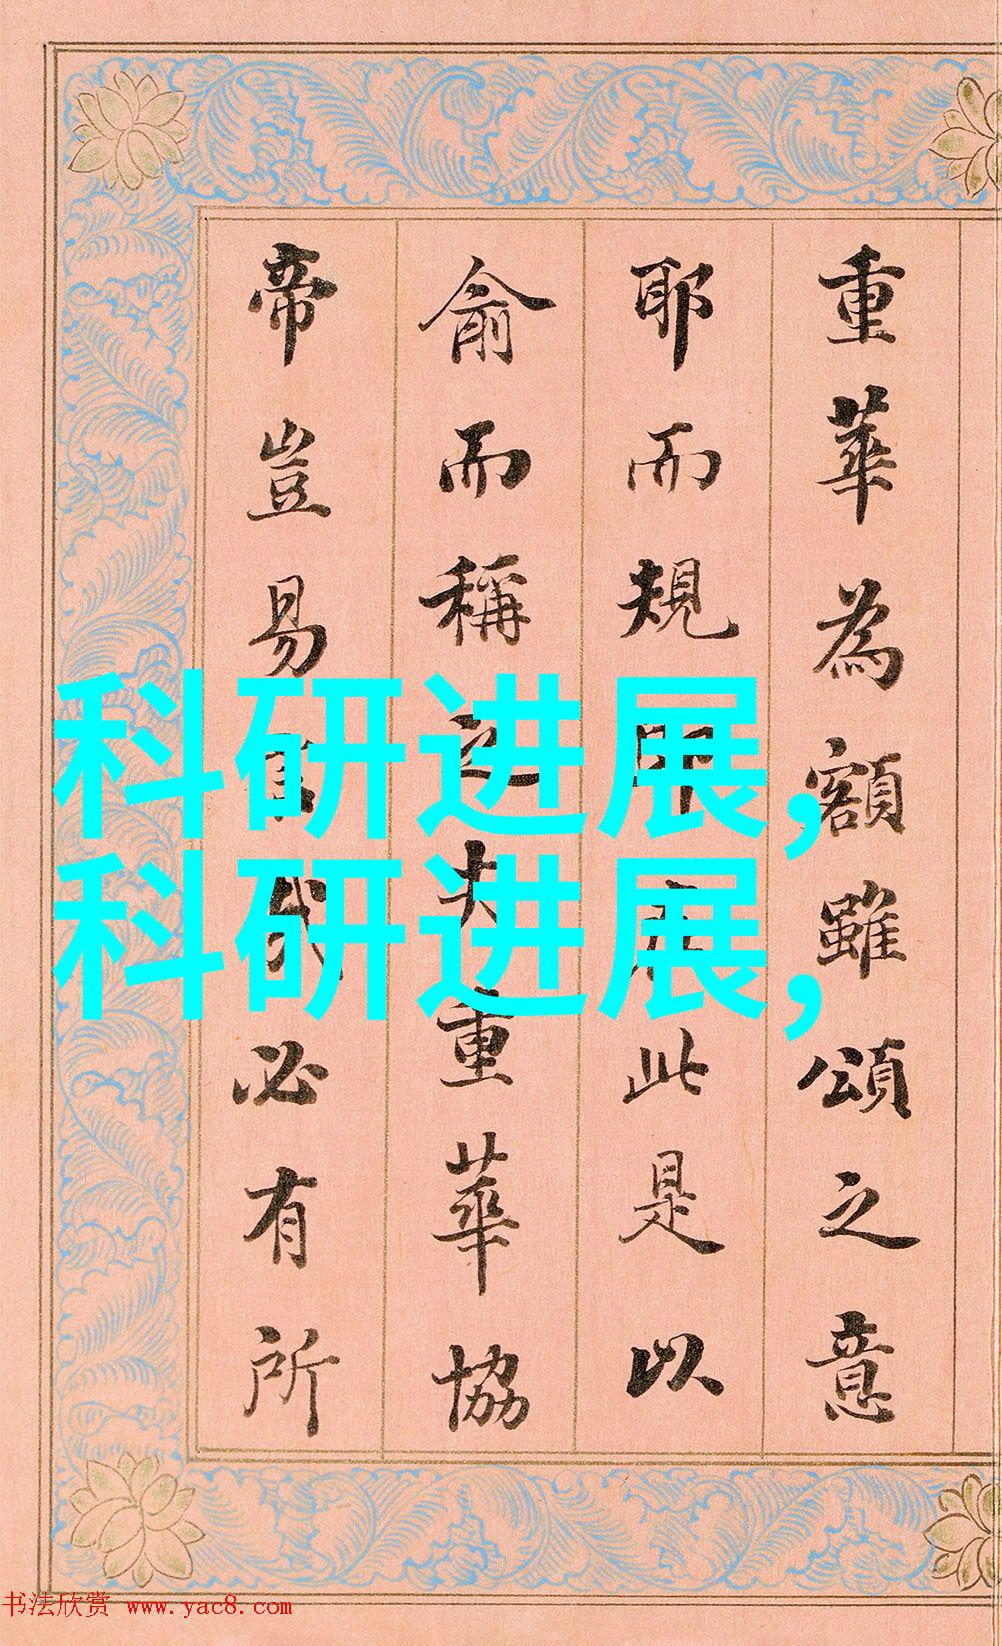 重華為額雖頌之意
耶而規此是以
俞而稱之夫重華協
帝豈易哉必有所
科研进展,
科研进展,
书法欣赏 www.yac8.com